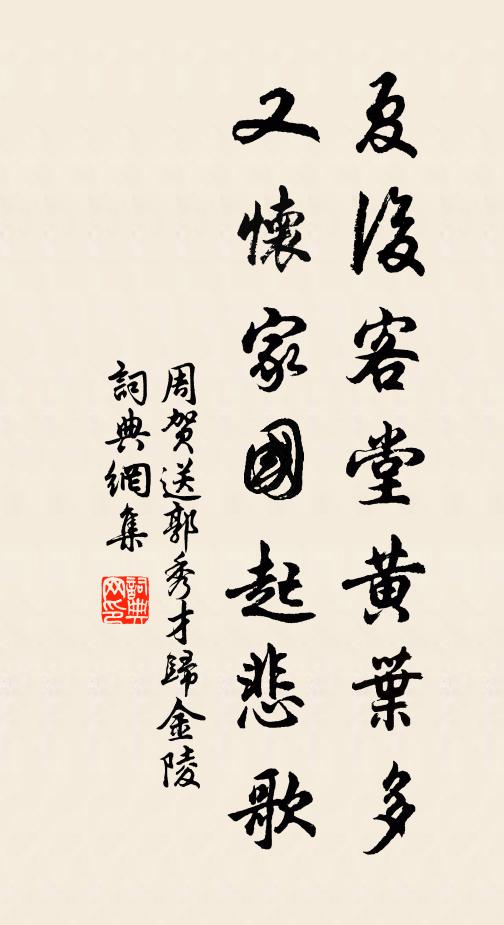 夏後客堂黃葉多
又懷家國起悲歌
周贺送郭秀才歸金陵
詞典網集
詞典网印